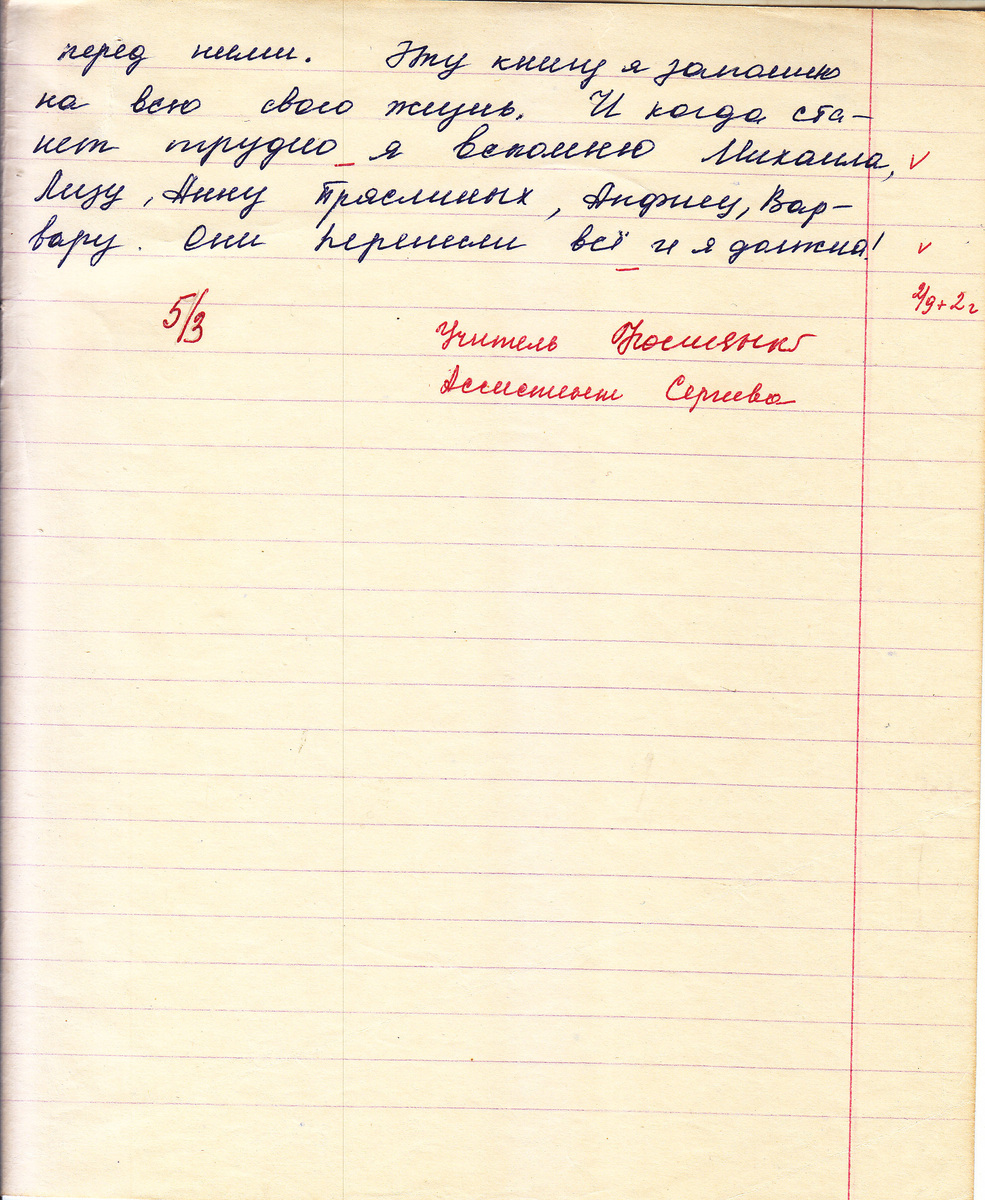 перед ними. Эту книгу я запомню
на всю свою жизнь. И когда ста-
нет трудно я вспомню Михаила, v
Лизу, Анну Пряслиных, Анфису, Вар-
вару. Они перенесли всё и я должна! v
2/9+2г
5/3
Учитель
Ассистент Сергеева